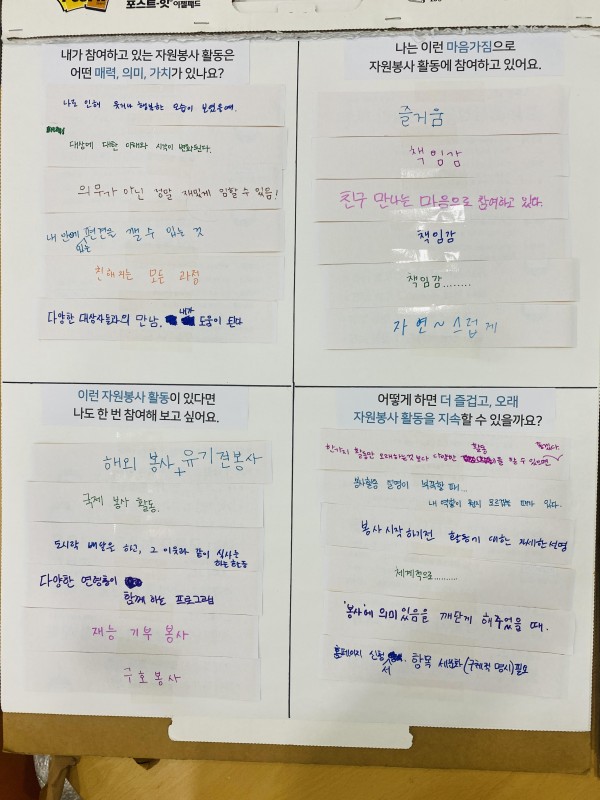 포스트-잇 이젤패드
내가 참여하고 있는 자원봉사 활동은
어떤 매력, 의미, 가치가 있나요?
나로 인해 웃거나 행복한 모습이 보였을때.
대상에 대한 이해와 시각이 변화된다.
의무가 아닌 정말 재밌게 임할 수 있음!
내 안에 있는 편견을 깰 수 있는 것
친해지는 모든 과정
다양한 대상자들과의 만남, 내가 도움이 된다
나는 이런 마음가짐으로
자원봉사 활동에 참여하고 있어요.
즐거움
책임감
친구 만나는 마음으로 참여하고 있다
책임감
책임감........
자연~스럽게
이런 자원봉사 활동이 있다면
나도 한 번 참여해 보고 싶어요.
해외 봉사 + 유기견봉사
국제 봉사 활동.
도시락 배달은 하고, 그 이웃과 같이 식사는
하는 활동
다양한 연령층이
함께 하는 프로그램
재능 기부 봉사
구호 봉사
어떻게 하면 더 즐겁고, 오래
자원봉사 활동을 지속할 수 있을까요?
한가지 활동만 오래하는것 보다 다양한 활동을 할 수 있으면 좋겠다.
봉사활동 설명이 부족할 때...
내 역할이 뭔지 모르겠는 때가 있다.
봉사 시작 하기전 활동에 대한 자세한 설명
체계적으로..........
'봉사'에 의미있음을 깨닫게 해주었을 때.
홈페이지 신청서 항목 세분화(구체적 명시)필요